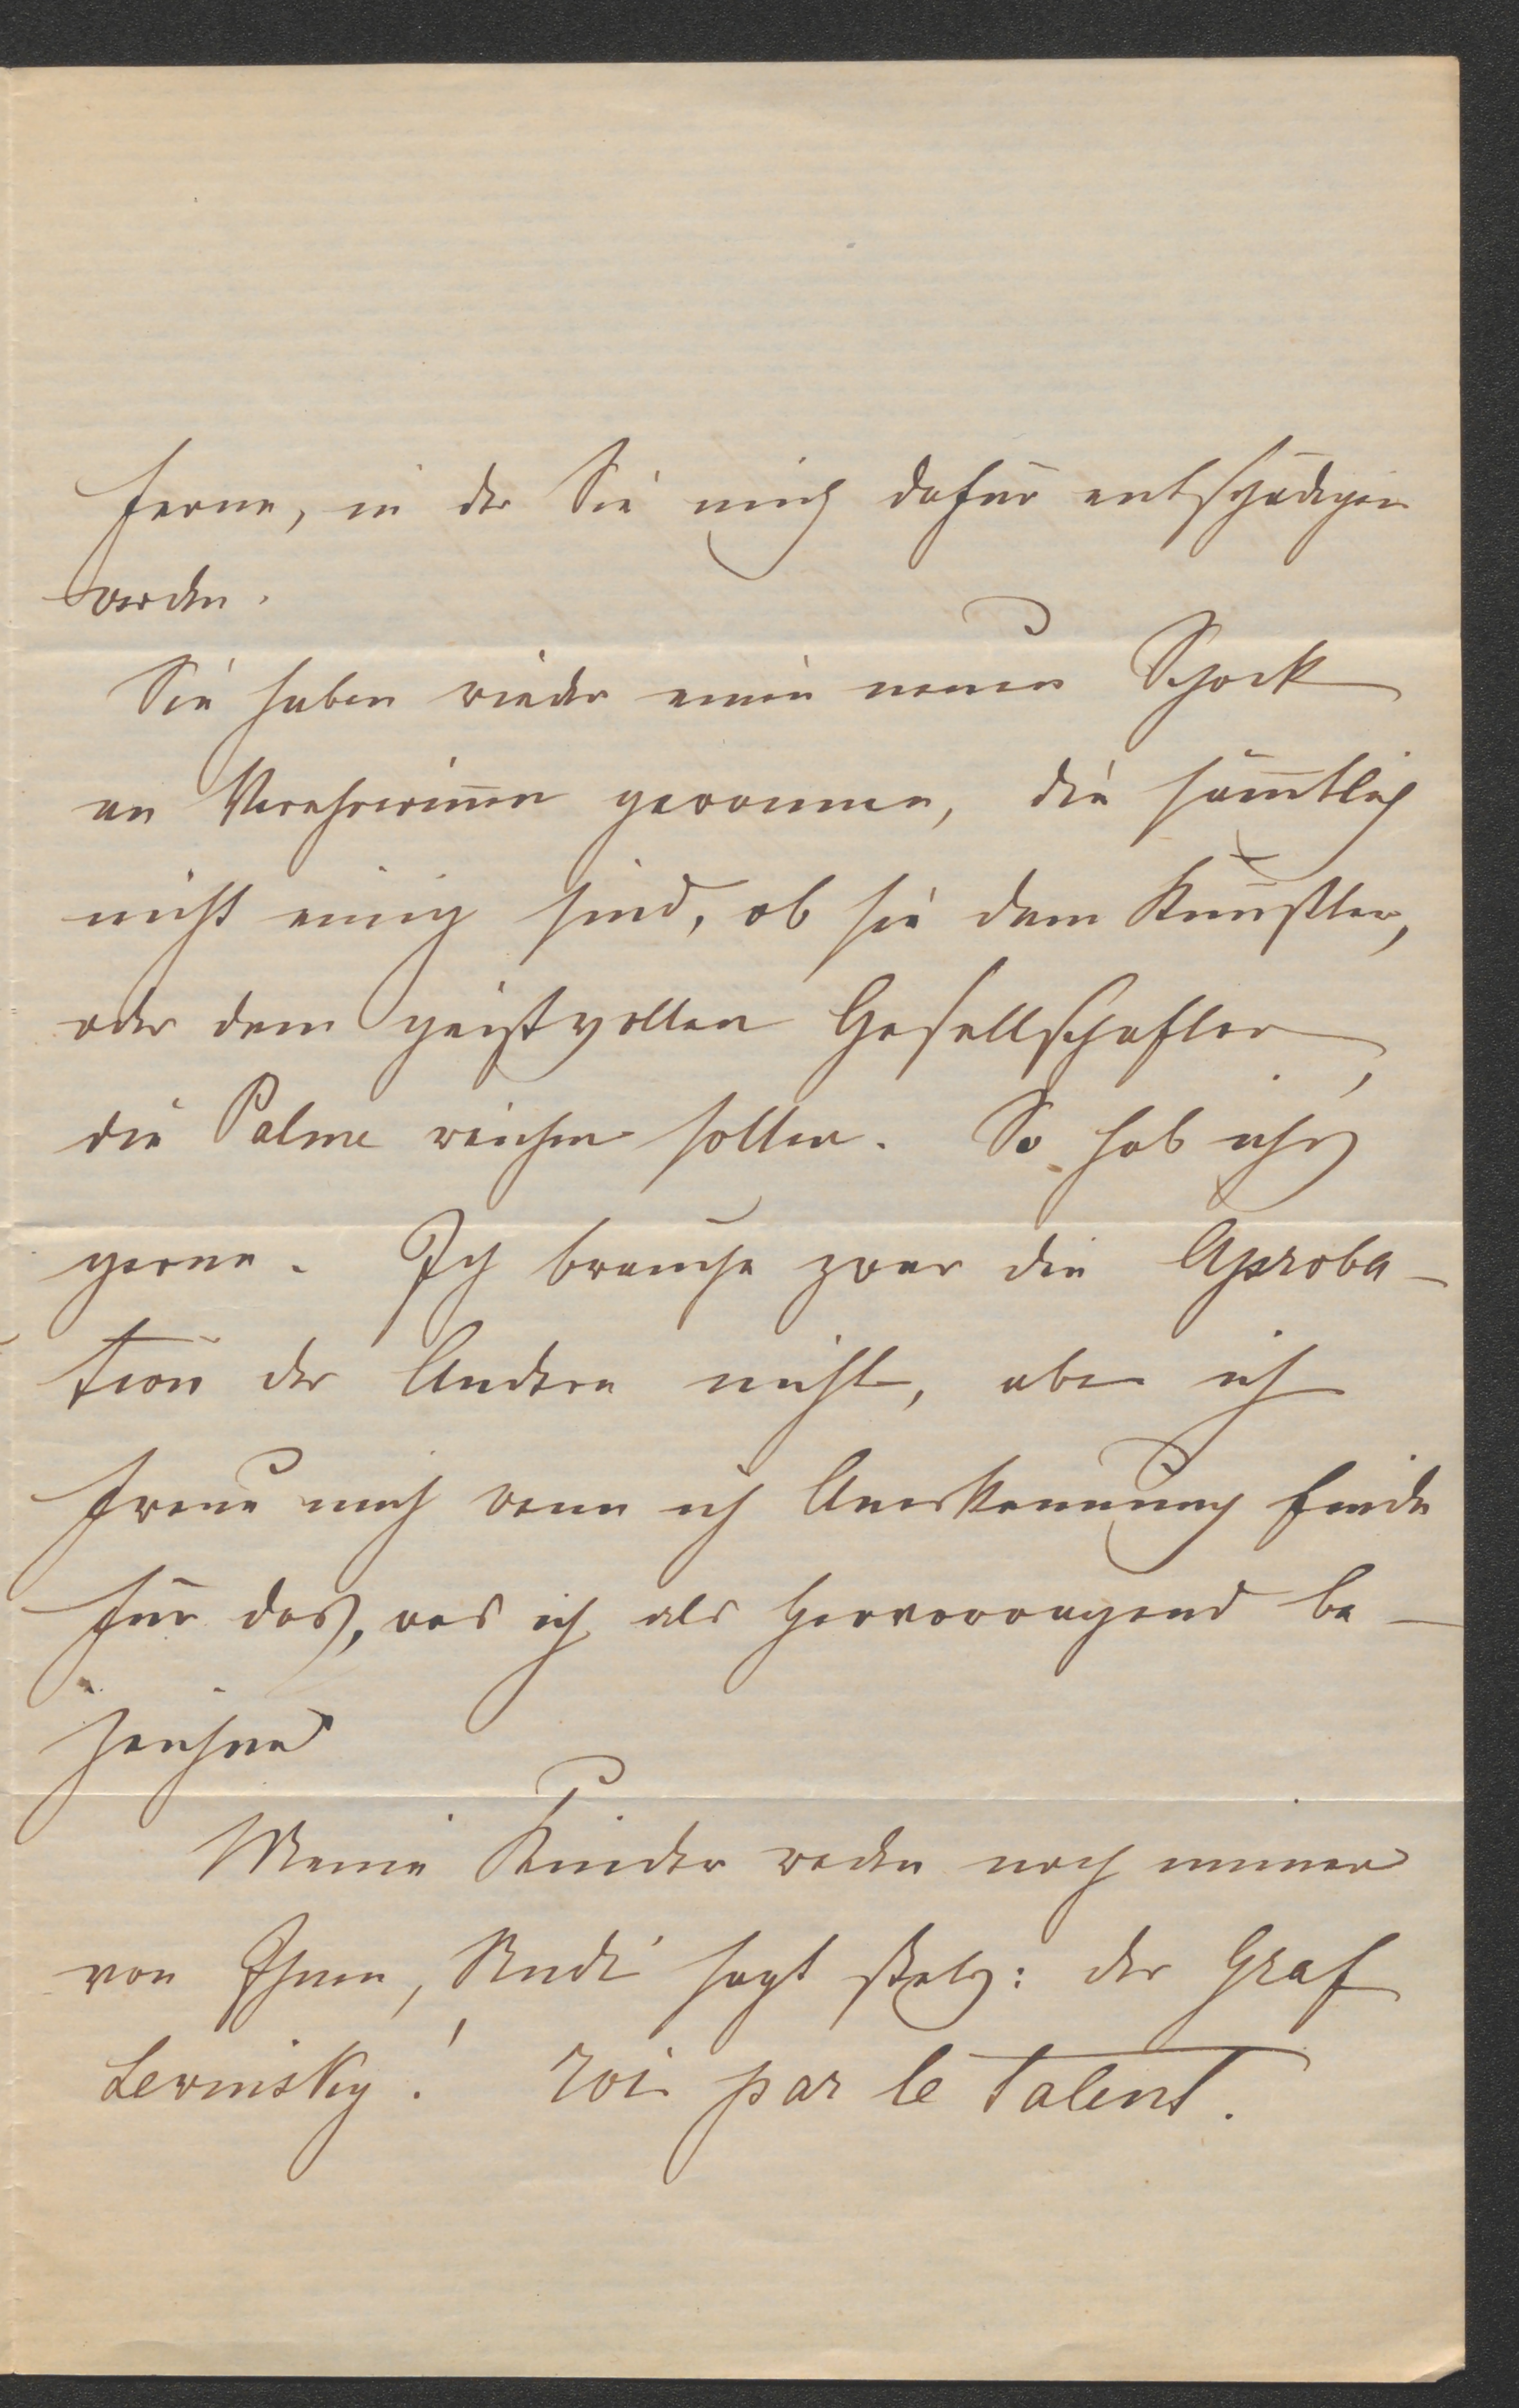 Ferne, in der Sie mich dafür entschädigen
werden.
Sie haben wieder einen neuen Schock
an Verehrerin̄en gewonnen, die säm̄tlich
nicht einig sind, ob sie dem Künstler,
oder dem geistvollen Gesellschafter,
die Palme reichen sollen. So hab ichs
gerne. Ich brauche zwar die Aproba-
tion der Andern nicht, aber ich
freue mich wenn ich Anerkennung finde
für das, was ich als hervorragend be-
zeichne
Meine Kinder reden noch immer
von Ihnen, Rudi sagt stolz: der Graf
Lewinsky! roi par le talent.